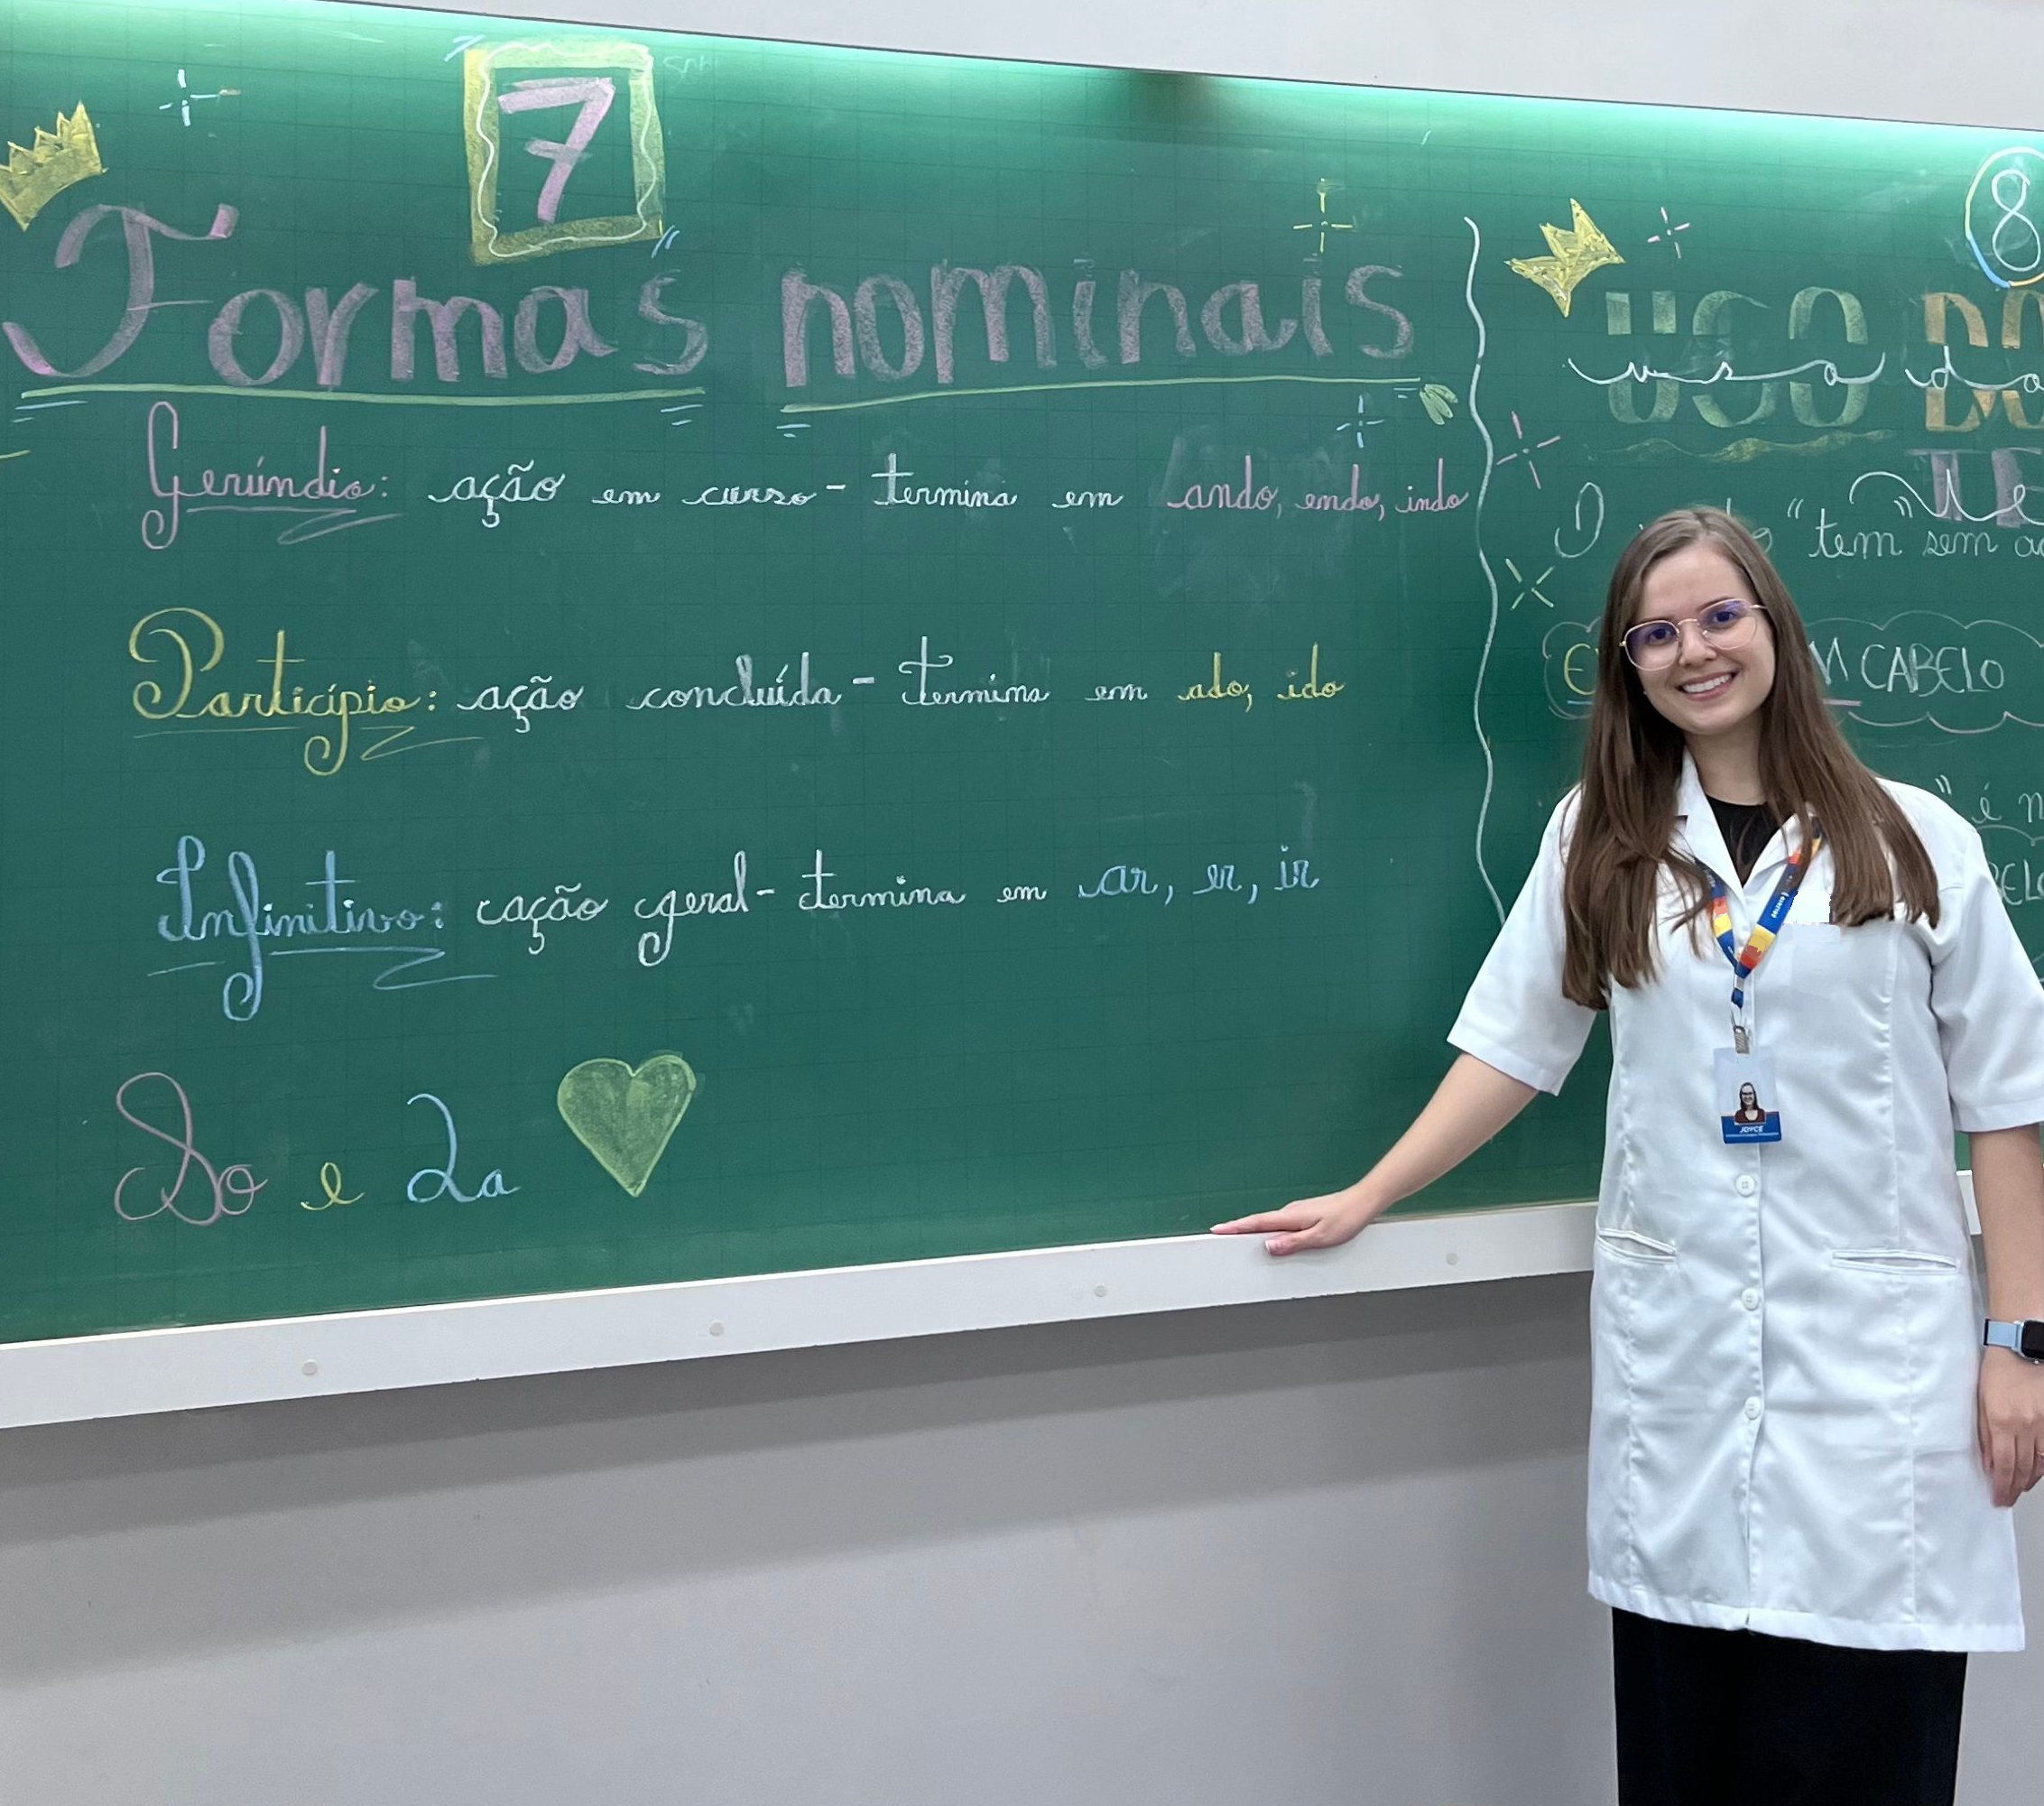 7
Formas nominais
Gerúndio: ação em curso - termina em ando, endo, indo
Particípio: ação concluída - termina em ado, ido
Infinitivo: ação geral - termina em ar, er, ir
So e La
8
USO DO
uso do
"tem" sem
CABELO
" é
JOYCE